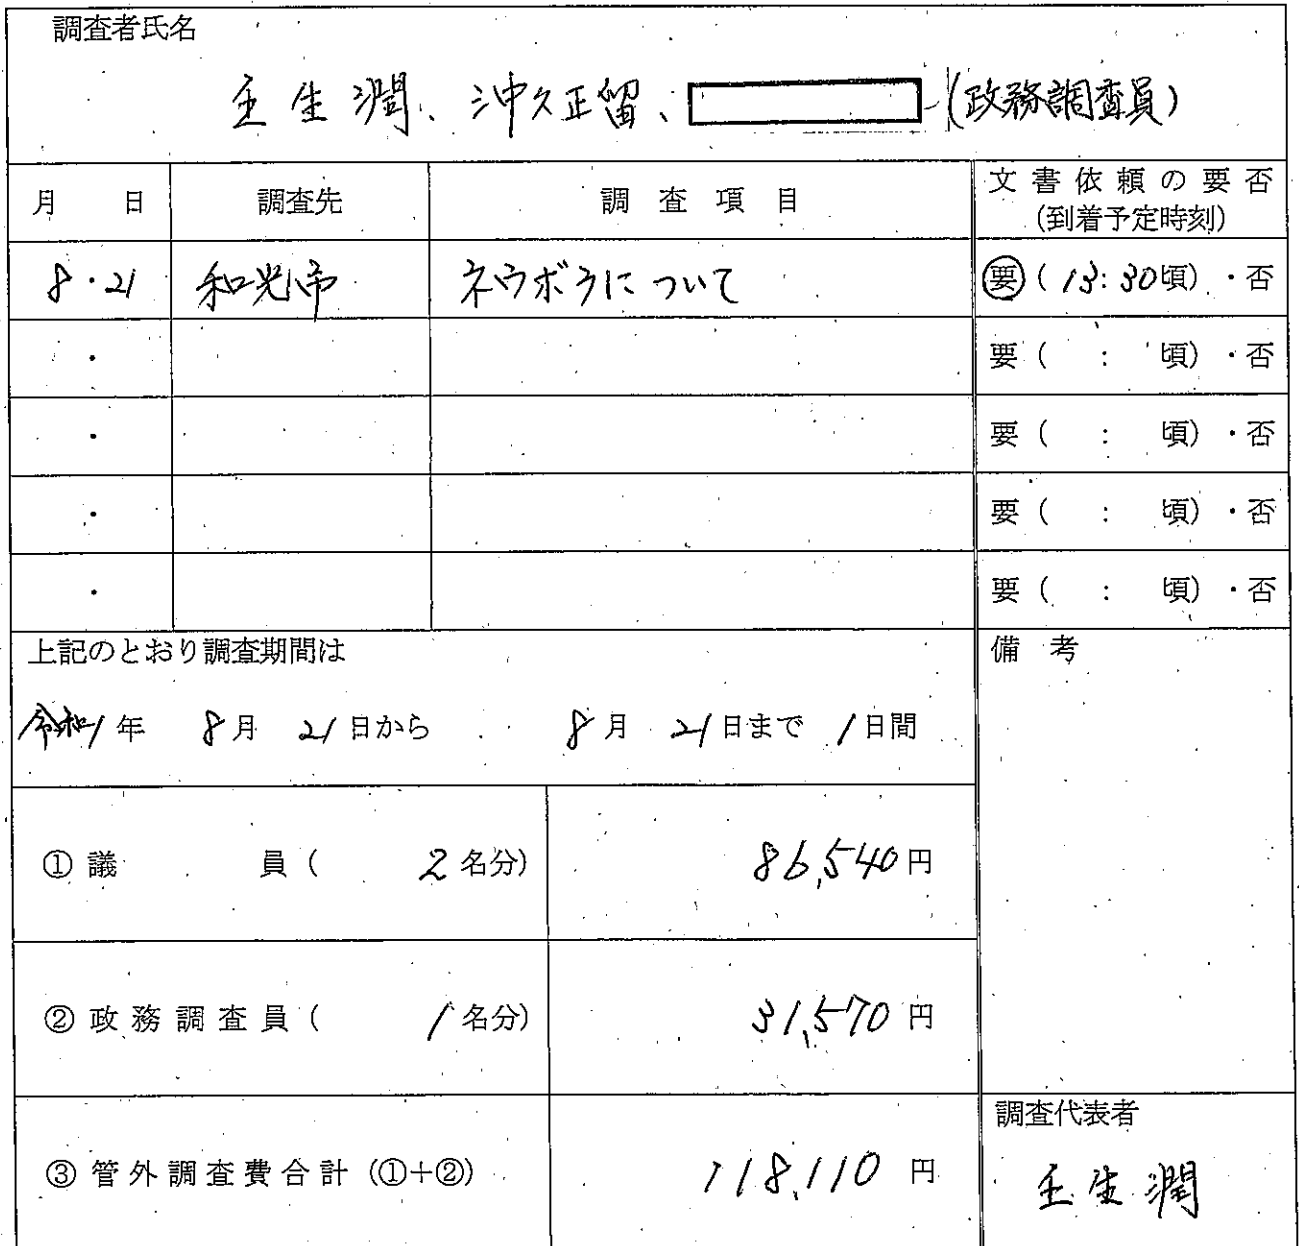 調査者氏名
壬生潤、沖久正留、(政務調査員)
月 日 調査先 調査項目 文書依頼の要否
(到着予定時刻)
8・21 和光市 ネウボラについて 要(13:30頃)・否
・ 要( : 頃)・否
・ 要( : 頃)・否
・ 要( : 頃)・否
・ 要( : 頃)・否
上記のとおり調査期間は 備考
令和1年 8月 21日から 8月 21日まで 1日間
①議員( 2名分) 86,540円
②政務調査員( 1名分) 31,570円
調査代表者
③管外調査費合計(①+②) 118,110円 壬生潤